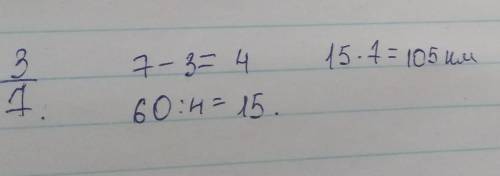 3/7. 7-3=4 15·7=105км
60:4=15.